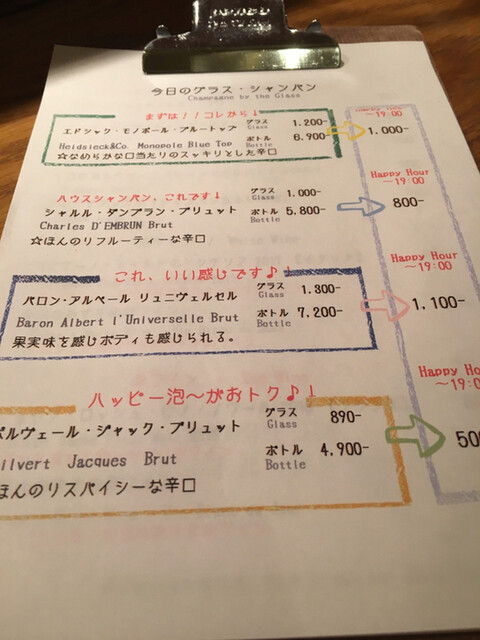 今日のグラス・シャンパン
Champagne by the Glass
まずは！！コレから↓
エドシック・モノポール・ブルートップ
グラス 1.200-
Glass
Heidsieck&Co. Monopole Blue Top
ボトル 6.900-
Bottle
☆なめらかな口当たりのスッキリとした辛口
~19:00
1.000-
ハウスシャンパン、これです↓
シャルル・ダンブラン・ブリュット
グラス 1.000-
Glass
Charles D'EMBRUN Brut
ボトル 5.800-
Bottle
☆ほんのりフルーティーな辛口
Happy Hour
~19:00
800-
これ、いい感じです♪↓
バロン・アルベール リュニヴェルセル
グラス 1.300-
Glass
Baron Albert l'Universelle Brut
ボトル 7.200-
Bottle
果実味を感じボディも感じられる。
Happy Hour
~19:00
1.100-
ハッピー泡～がおトク♪↓
ルヴェール・ジャック・ブリュット
グラス 890-
Glass
ilvert Jacques Brut
ボトル 4.900-
Bottle
ほんのりスパイシーな辛口
Happy Hou
~19:0
50